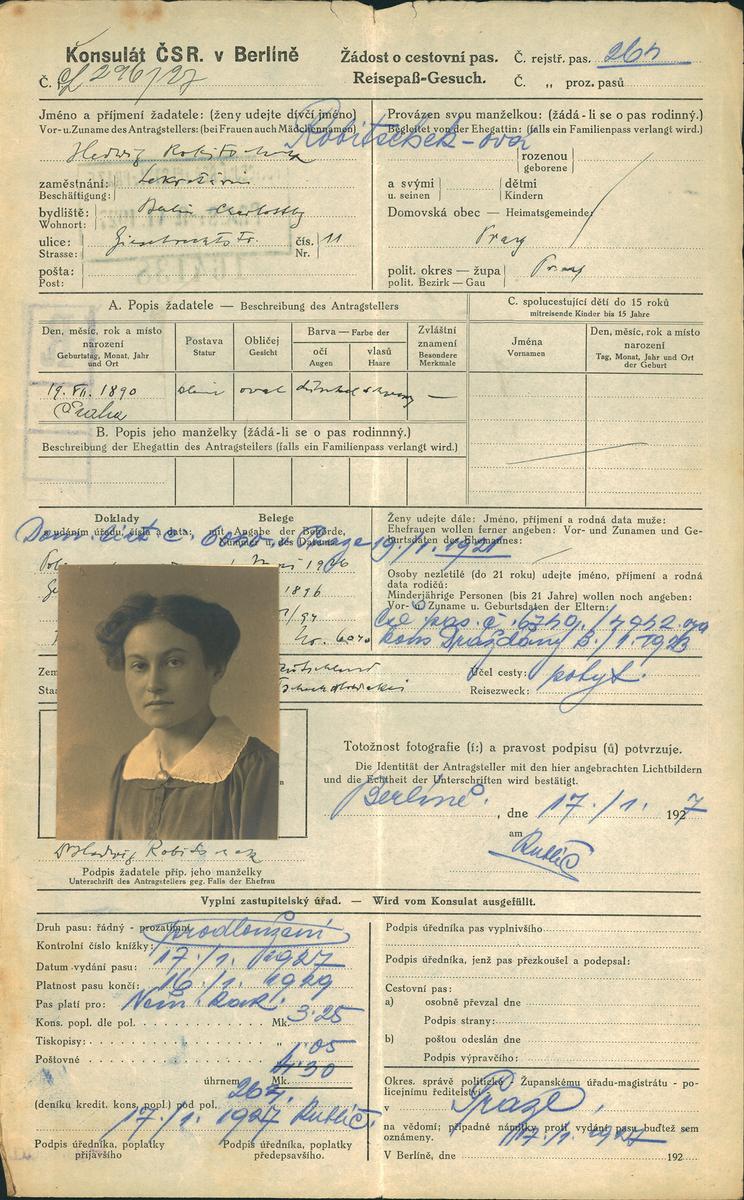 Konsulát ČSR. v Berlíně
Č. j. 296/27
Žádost o cestovní pas.
Reisepaß-Gesuch.
Č. rejstř. pas. 264
Č. „ proz. pasů
Jméno a příjmení žadatele: (ženy udejte dívčí jméno)
Vor- u. Zuname des Antragstellers: (bei Frauen auch Mädchennamen)
Robitschek-ova
Hedwig
zaměstnání:
Beschäftigung:
Sekretärin
bydliště:
Wohnort:
Berlin Charlottbg
ulice:
Strasse:
čís.
Nr.
11
pošta:
Post:
Provázen svou manželkou: (žádá-li se o pas rodinný.)
Begleitet von der Ehegattin: (falls ein Familienpass verlangt wird.)
rozenou
geborene
a svými dětmi
u. seinen Kindern
Domovská obec — Heimatsgemeinde:
Prag
polit. okres — župa
polit. Bezirk — Gau
Prag
A. Popis žadatele — Beschreibung des Antragstellers
Den, měsíc, rok a místo narození
Geburtstag, Monat, Jahr und Ort
Postava
Statur
Obličej
Gesicht
Barva — Farbe der
očí
Augen
vlasů
Haare
Zvláštní znamení
Besondere Merkmale
19. VII. 1890
Praha
oval
dunkel
—
C. spolucestující děti do 15 roků
mitreisende Kinder bis 15 Jahre
Jména
Vornamen
Den, měsíc, rok a místo narození
Tag, Monat, Jahr und Ort der Geburt
B. Popis jeho manželky (žádá-li se o pas rodinnný.)
Beschreibung der Ehegattin des Antragsteilers (falls ein Familienpass verlangt wird.)
Doklady
Belege
s udáním úřadu, čísla a data:
mit Angabe der Behörde, Nummer u. des Datums:
Praze 19./1. 1921
1896
Ženy udejte dále: Jméno, příjmení a rodná data muže:
Ehefrauen wollen ferner angeben: Vor- und Zunamen und Geburtsdaten des Ehemannes:
Osoby nezletilé (do 21 roku) udejte jméno, příjmení a rodná data rodičů:
Minderjährige Personen (bis 21 Jahre) wollen noch angeben: Vor- u. Zuname u. Geburtsdaten der Eltern:
čsl. pas. č. 6740/
kons Drážďany 3./1. 1923
Účel cesty:
Reisezweck:
pobyt.
Deutschland
Totožnost fotografie (í:) a pravost podpisu (ů) potvrzuje.
Die Identität der Antragsteller mit den hier angebrachten Lichtbildern
und die Echtheit der Unterschriften wird bestätigt.
Berlíně. , dne 17./1. 1927
am
Rublič
Dr Hedwig
Podpis žadatele příp. jeho manželky
Unterschrift des Antragstellers geg. Falls der Ehefrau
Vyplní zastupitelský úřad. — Wird vom Konsulat ausgefüllt.
Druh pasu: řádný - prozatímní
prodloužení
Kontrolní číslo knížky:
Datum vydání pasu:
17./1. 1927
Platnost pasu končí:
16./1. 1929
Pas platí pro:
Kons. popl. dle pol.
Mk. 3·25
Tiskopisy:
„ 1·05
Poštovné
úhrnem Mk. 4·30
264.
(deníku kredit. kons. popl.) pod pol.
17./1. 1927 Rublič.
Podpis úředníka, poplatky přijavšího
Podpis úředníka, poplatky předepsavšího.
Podpis úředníka pas vyplnivšího.
Podpis úředníka, jenž pas přezkoušel a podepsal:
Cestovní pas:
a) osobně převzal dne
Podpis strany:
b) poštou odeslán dne
Podpis výpravčího:
Okres. správě politické - Županskému úřadu-magistrátu - policejnímu ředitelství
v Praze,
na vědomí; případné námitky proti vydání pasu buďtež sem oznámeny.
17./1. 1927
V Berlíně, dne 192